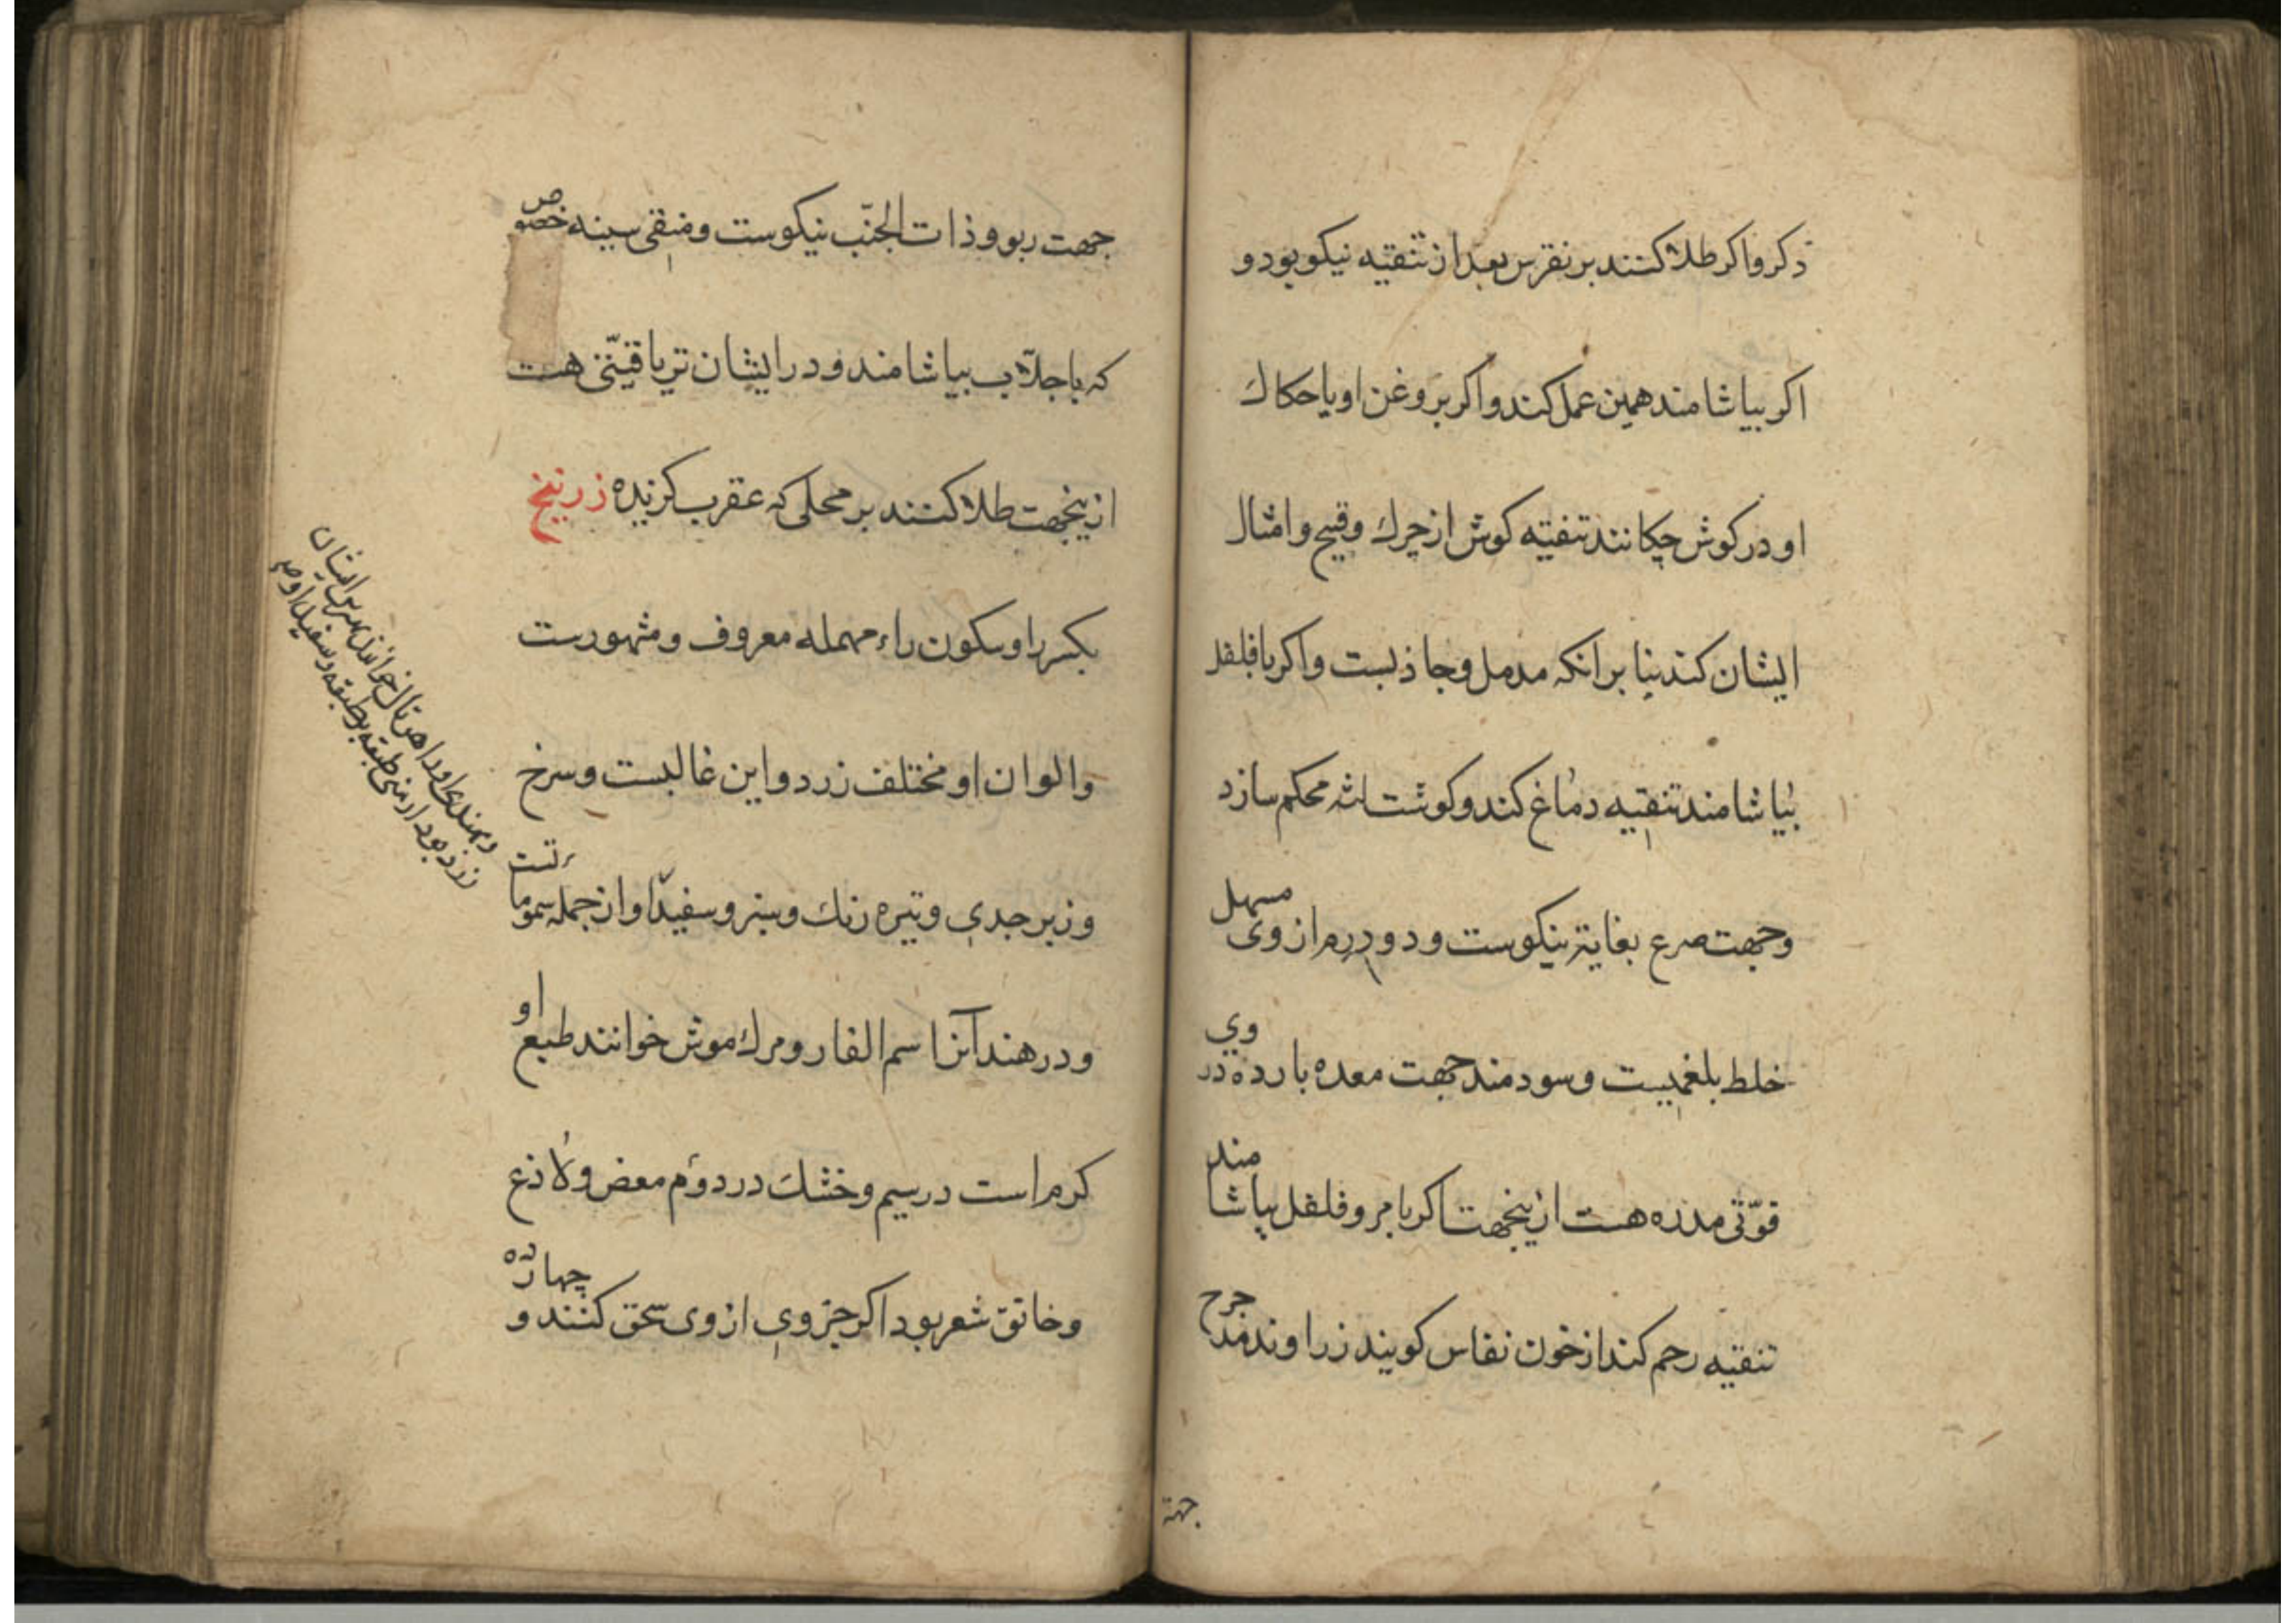 ذكر واكر طلا كنند بر نقرس بعد از تنقيه نيكو بود و
اكر بياشامند همين عمل كند واكر بروغن او يا حكاك
او در كوش چكانند تنقيه كوش از چرك وقيح وامثال
ايشان كند بنا برانكه مدمل وجاذبست واكر با فلفل
بياشامند تنقيه دماغ كند وكوشت لثه محكم سازد
وجهت صرع بغايت نيكوست ودو درم از وى مسهل
خلط بلغميست وسودمند جهت معده بارده در وي
قوّتى مدره هست ازينجهت اكر با مر وفلفل بياشامند
تنقيه رحم كند از خون نفاس كويند زراوند مدحرج
جهة
جهت ربو وذات الجنب نيكوست ومنقى سينه خصوص
كه با جلّاب بياشامند ودر ايشان ترياقيّتى هست
ازينجهت طلا كنند بر محلى كه عقرب كزيده زرنيخ
بكسر زا وسكون راء مهمله معروف ومشهورست
والوان او مختلف زرد واين غالبست وسرخ
وزبرجدي وتيره رنك وسبز وسفيد او از جمله سموماتست
ودر هند آنرا سم الفار ومرك موش خوانند طبع او
كرم است در سيم وخشك در دوم معفن ولاذع
وحالق شعر بود اكر جزوي از وى سحق كنند و چهارده
وبهندى اورا هرتال خوانند بهترين ايشان
زرد بود ارمنى طبقه بر طبقه وسفيد او